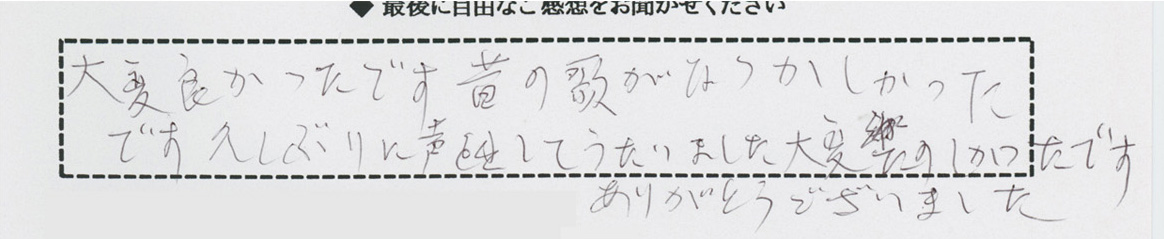 ◆ 最後に自由なご感想をお聞かせください
大変良かったです昔の歌がなつかしかった
です久しぶりに声出してうたいました大変楽しかったです
ありがとうございました